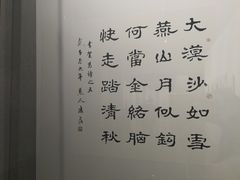 大漠沙如雪
燕山月似鈎
何當金絡腦
快走踏清秋
李賀馬詩之五